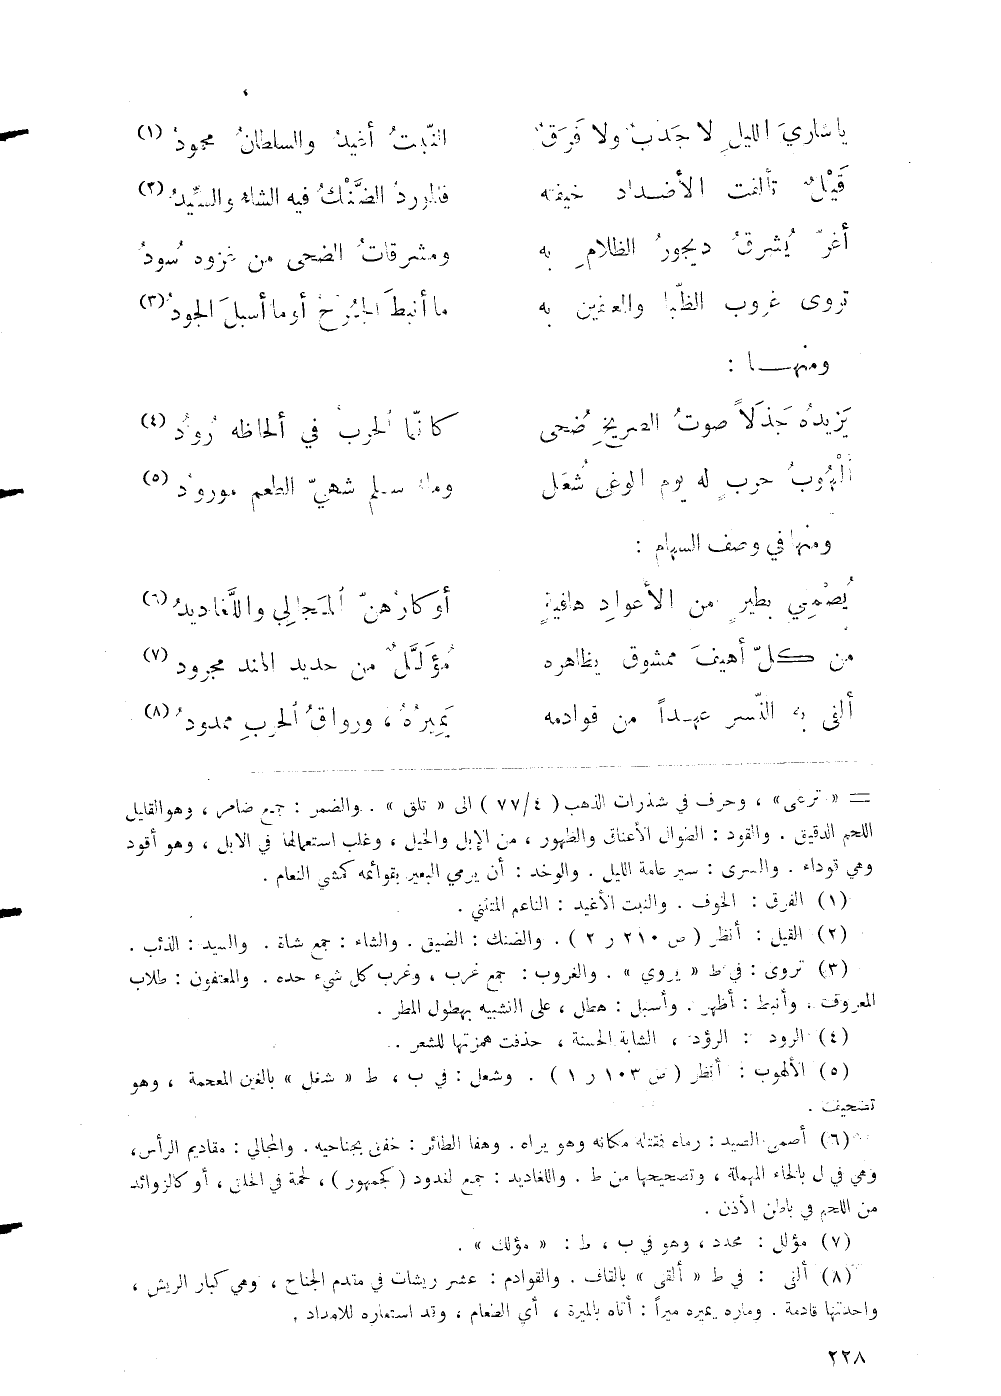 يا شاريَ الليلِ لا جَدْبٌ ولا فَرَقٌ النَّبتُ أغيدُ والسلطانُ محمودُ (١)
قَيْلٌ تألفت الأضداد خيفته فالوردُ الضَّنْكُ فيه الشاءُ والسِّيدُ (٢)
أغرّ يُشرقُ ديجورُ الظلامِ به ومشرقاتُ الضحى من غزوه سُودُ
تروى غروب الظُّبا والمعتفين به ما أنبطَ الجُرْحُ أو ما أسبلَ الجودُ (٣)
ومنهـا :
يَزيدُه جَذَلاً صوتُ الصريخِ ضُحى كأنّما الحربُ في ألحاظه رُودُ (٤)
أُلْهُوبُ حربٍ له يوم الوغى شُعَل وماءُ سلم شهيّ الطعم مورودُ (٥)
ومنها في وصف السهام :
يُصْمِي بطيرٍ من الأعوادِ هافيةٍ أوكارُهنّ المَجالِي واللَّغاديدُ (٦)
من كلّ أهيفَ ممشوق يظاهره مُؤَلَّلٌ من حديد الهند مجرود (٧)
ألفى به النّسر عهداً من قوادمه يَمِيرُهُ ، ورواقُ الحربِ ممدودُ (٨)
= « ترعى » ، وحرف في شذرات الذهب ( ٧٧/٤ ) الى « تلق » . والضمر : جمع ضامر ، وهو القليل
اللحم الدقيق . والقود : الطوال الأعناق والظهور ، من الإبل والخيل ، وغلب استعمالها في الابل ، وهو أقود
وهي قوداء . والسرى : سير عامة الليل . والوخد : أن يرمي البعير بقوائمه كمشي النعام .
(١) الفرق : الخوف . والنبت الأغيد : الناعم المتثني .
(٢) القيل : أنظر ( ص ٢١٠ ر ٢ ) . والضنك : الضيق . والشاء : جمع شاة . والسيد : الذئب .
(٣) تروى : في ط « يروي » . والغروب : جمع غرب ، وغرب كل شيء حده . والمعتفون : طلاب
المعروف . وأنبط : أظهر . وأسبل : هطل ، على التشبيه بهطول المطر .
(٤) الرود : الرؤد ، الشابة الحسنة ، حذفت همزتها للشعر .
(٥) الألهوب : أنظر ( ص ١٠٣ ر ١ ) . وشعل : في ب ، ط « شغل » بالغين المعجمة ، وهو
تصحيف .
(٦) أصمى الصيد : رماه فقتله مكانه وهو يراه . وهفا الطائر : خفق بجناحيه . والمجالي : مقاديم الرأس ،
وهي في ل بالحاء المهملة ، وتصحيحها من ط . واللغاديد : جمع لغدود ( كجمهور ) ، لحمة في الحلق ، أو كالزوائد
من اللحم في باطن الأذن .
(٧) مؤلل : محدد ، وهو في ب ، ط : « مؤلك » .
(٨) ألفى : في ط « ألقى » بالقاف . والقوادم : عشر ريشات في مقدم الجناح ، وهي كبار الريش ،
واحدتها قادمة . وماره يميره ميراً : أتاه بالميرة ، أي الطعام ، وقد استعاره للامداد .
٢٢٨